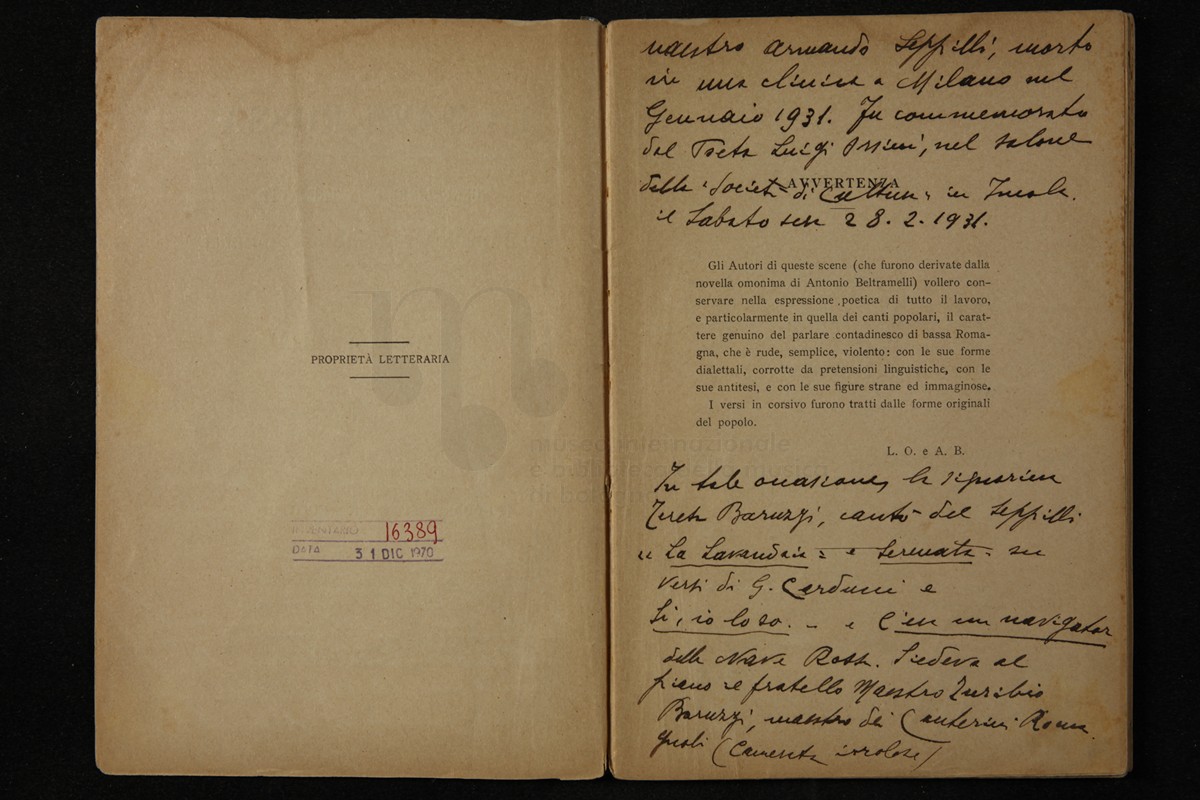 PROPRIETÀ LETTERARIA
INVENTARIO 16389
DATA 31 DIC. 1970
maestro Armando Seppilli, morto
in una clinica a Milano nel
Gennaio 1931. Fu commemorato
dal Poeta Luigi Orsini, nel salone
della "Società di Cultura" in Imola.
il Sabato sera 28.2.1931.
AVVERTENZA
Gli Autori di queste scene (che furono derivate dalla
novella omonima di Antonio Beltramelli) vollero con-
servare nella espressione poetica di tutto il lavoro,
e particolarmente in quella dei canti popolari, il carat-
tere genuino del parlare contadinesco di bassa Roma-
gna, che è rude, semplice, violento: con le sue forme
dialettali, corrotte da pretensioni linguistiche, con le
sue antitesi, e con le sue figure strane ed immaginose.
I versi in corsivo furono tratti dalle forme originali
del popolo.
L. O. e A. B.
In tale occasione, la signorina
Baruzzi, cantò del Seppilli
"La Lavandaia" e Serenata" su
versi di G. Carducci e
Sì, io lo so. - e C'era un navigator
della Nave Rossa. Sedeva al
piano il fratello Maestro Turibio
Baruzzi, maestro dei Canterini Roma
gnoli (Camerata imolese)
museo internazionale
e biblioteca della musica
di bologna